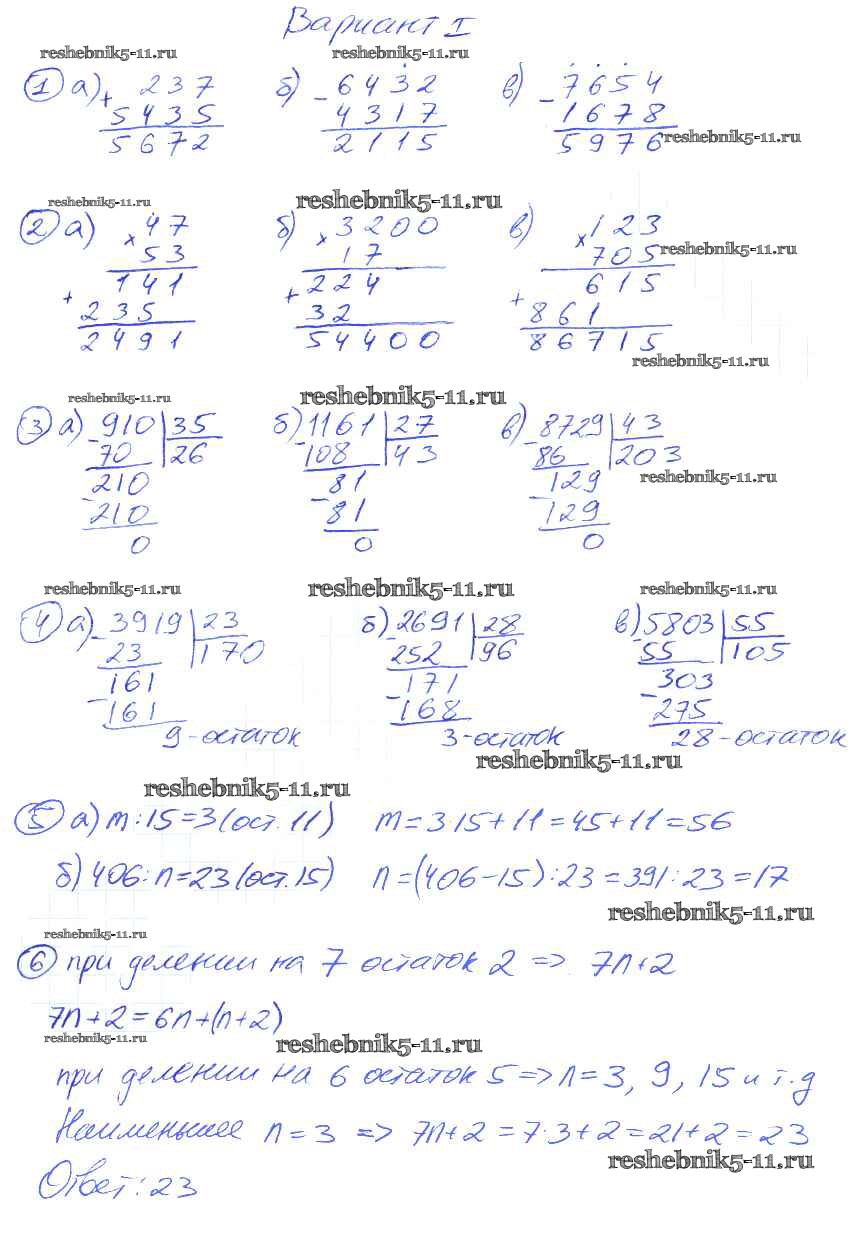 Вариант I
reshebnik5-11.ru reshebnik5-11.ru
1 а) + 237 б) - 6432 в) - 7654
5435 4317 1678
5672 2115 5976 reshebnik5-11.ru
reshebnik5-11.ru reshebnik5-11.ru
2 а) × 47 б) × 3200 в) × 123
53 17 705 reshebnik5-11.ru
141 224 615
+ 235 + 32 + 861
2491 54400 86715
reshebnik5-11.ru
reshebnik5-11.ru reshebnik5-11.ru
3 а) - 910 35 б) - 1161 27 в) - 8729 43
70 26 108 43 86 203
210 81 129 reshebnik5-11.ru
- 210 - 81 - 129
0 0 0
reshebnik5-11.ru reshebnik5-11.ru reshebnik5-11.ru
4 а) - 3919 23 б) - 2691 28 в) - 5803 55
23 170 252 96 55 105
161 171 303
- 161 - 168 - 275
9-остаток 3-остаток 28-остаток
reshebnik5-11.ru
reshebnik5-11.ru
5 а) m:15=3(ост.11) m=3·15+11=45+11=56
б) 406:n=23(ост.15) n=(406-15):23=391:23=17
reshebnik5-11.ru
reshebnik5-11.ru
6 при делении на 7 остаток 2 => 7n+2
7n+2=6n+(n+2)
reshebnik5-11.ru reshebnik5-11.ru
при делении на 6 остаток 5 => n=3, 9, 15 и т.д
Наименьшее n=3 => 7n+2=7·3+2=21+2=23
reshebnik5-11.ru
Ответ: 23